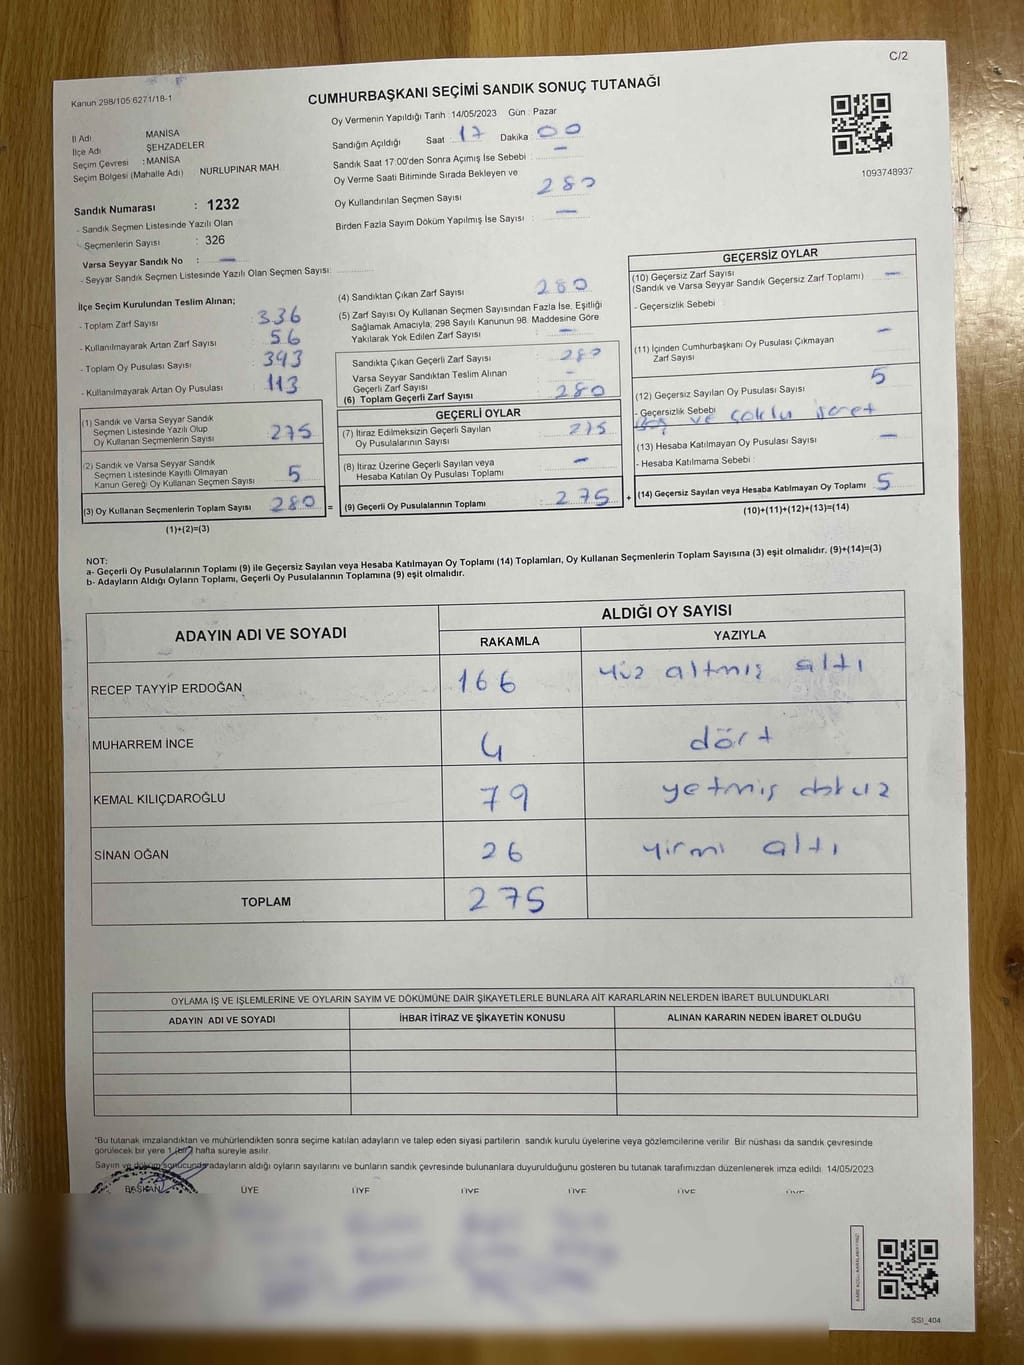 C/2
Kanun 298/105 6271/18-1
CUMHURBAŞKANI SEÇİMİ SANDIK SONUÇ TUTANAĞI
Oy Vermenin Yapıldığı Tarih : 14/05/2023 Gün : Pazar
İl Adı MANİSA
İlçe Adı ŞEHZADELER
Seçim Çevresi : MANİSA
Seçim Bölgesi (Mahalle Adı) NURLUPINAR MAH.
Sandık Numarası : 1232
- Sandık Seçmen Listesinde Yazılı Olan
Seçmenlerin Sayısı : 326
Varsa Seyyar Sandık No : —
- Seyyar Sandık Seçmen Listesinde Yazılı Olan Seçmen Sayısı:
Sandığın Açıldığı Saat : 17 Dakika : 00
Sandık Saat 17:00'den Sonra Açılmış İse Sebebi : —
Oy Verme Saati Bitiminde Sırada Bekleyen ve
Oy Kullandırılan Seçmen Sayısı 280
Birden Fazla Sayım Döküm Yapılmış İse Sayısı : —
1093748937
İlçe Seçim Kurulundan Teslim Alınan;
- Toplam Zarf Sayısı : 336
- Kullanılmayarak Artan Zarf Sayısı : 56
- Toplam Oy Pusulası Sayısı : 393
- Kullanılmayarak Artan Oy Pusulası : 113
(1) Sandık ve Varsa Seyyar Sandık
Seçmen Listesinde Yazılı Olup
Oy Kullanan Seçmenlerin Sayısı : 275
(2) Sandık ve Varsa Seyyar Sandık
Seçmen Listesinde Kayıtlı Olmayan
Kanun Gereği Oy Kullanan Seçmen Sayısı : 5
(3) Oy Kullanan Seçmenlerin Toplam Sayısı : 280 =
(1)+(2)=(3)
(4) Sandıktan Çıkan Zarf Sayısı : 280
(5) Zarf Sayısı Oy Kullanan Seçmen Sayısından Fazla İse, Eşitliği
Sağlamak Amacıyla, 298 Sayılı Kanunun 98. Maddesine Göre
Yakılarak Yok Edilen Zarf Sayısı : —
Sandıkta Çıkan Geçerli Zarf Sayısı : 280
Varsa Seyyar Sandıktan Teslim Alınan
Geçerli Zarf Sayısı : —
(6) Toplam Geçerli Zarf Sayısı : 280
GEÇERLİ OYLAR
(7) İtiraz Edilmeksizin Geçerli Sayılan
Oy Pusulalarının Sayısı : 275
(8) İtiraz Üzerine Geçerli Sayılan veya
Hesaba Katılan Oy Pusulası Toplamı : —
(9) Geçerli Oy Pusulalarının Toplamı : 275 +
GEÇERSİZ OYLAR
(10) Geçersiz Zarf Sayısı
(Sandık ve Varsa Seyyar Sandık Geçersiz Zarf Toplamı) —
- Geçersizlik Sebebi :
(11) İçinden Cumhurbaşkanı Oy Pusulası Çıkmayan
Zarf Sayısı —
(12) Geçersiz Sayılan Oy Pusulası Sayısı 5
- Geçersizlik Sebebi
Boş ve çoklu işaret
(13) Hesaba Katılmayan Oy Pusulası Sayısı —
- Hesaba Katılmama Sebebi :
(14) Geçersiz Sayılan veya Hesaba Katılmayan Oy Toplamı : 5
(10)+(11)+(12)+(13)=(14)
NOT:
a- Geçerli Oy Pusulalarının Toplamı (9) ile Geçersiz Sayılan veya Hesaba Katılmayan Oy Toplamı (14) Toplamları, Oy Kullanan Seçmenlerin Toplam Sayısına (3) eşit olmalıdır. (9)+(14)=(3)
b- Adayların Aldığı Oyların Toplamı, Geçerli Oy Pusulalarının Toplamına (9) eşit olmalıdır.
ADAYIN ADI VE SOYADI
ALDIĞI OY SAYISI
RAKAMLA YAZIYLA
RECEP TAYYİP ERDOĞAN 166 Yüz altmış altı
MUHARREM İNCE 4 dört
KEMAL KILIÇDAROĞLU 79 yetmiş dokuz
SİNAN OĞAN 26 yirmi altı
TOPLAM 275
OYLAMA İŞ VE İŞLEMLERİNE VE OYLARIN SAYIM VE DÖKÜMÜNE DAİR ŞİKAYETLERLE BUNLARA AİT KARARLARIN NELERDEN İBARET BULUNDUKLARI
ADAYIN ADI VE SOYADI İHBAR İTİRAZ VE ŞİKAYETİN KONUSU ALINAN KARARIN NEDEN İBARET OLDUĞU
*Bu tutanak imzalandıktan ve mühürlendikten sonra seçime katılan adayların ve talep eden siyasi partilerin sandık kurulu üyelerine veya gözlemcilerine verilir. Bir nüshası da sandık çevresinde
görülecek bir yere 1 (bir) hafta süreyle asılır.
Sayım ve döküm sonucunda adayların aldığı oyların sayılarını ve bunların sandık çevresinde bulunanlara duyurulduğunu gösteren bu tutanak tarafımızdan düzenlenerek imza edildi. 14/05/2023
BAŞKAN ÜYE ÜYE ÜYE ÜYE ÜYE ÜYE
SSI_404